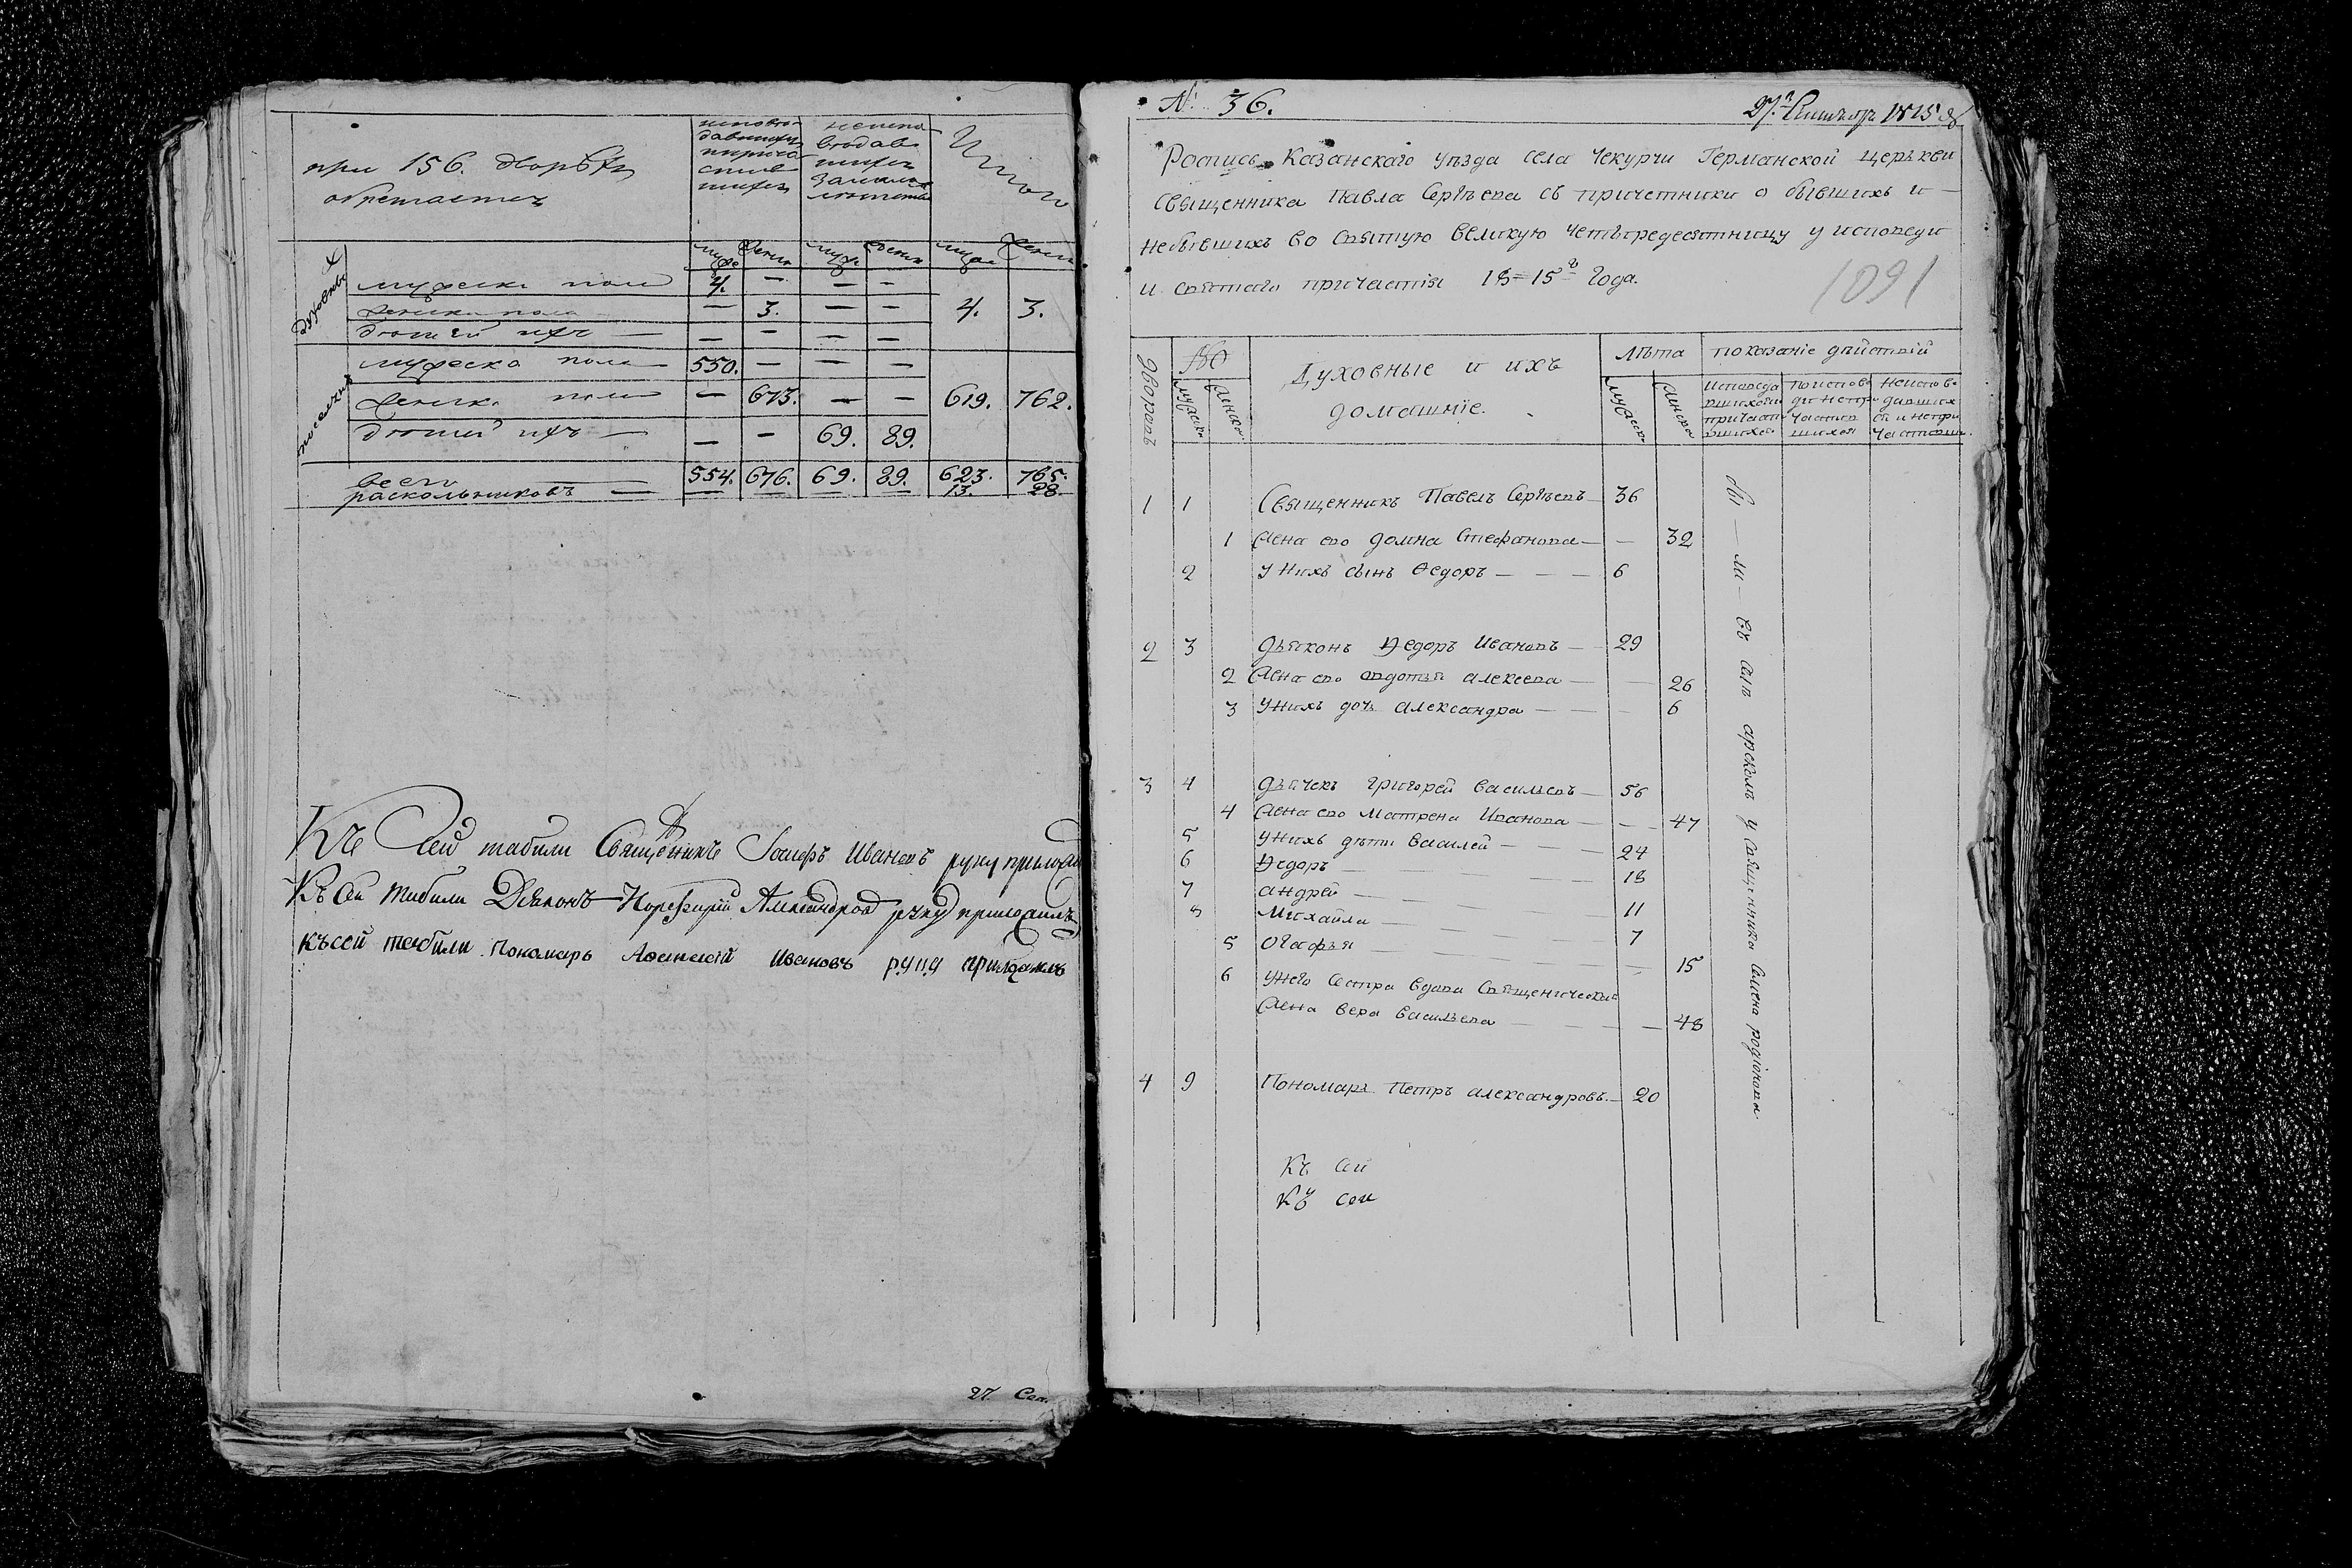 при 156. дворѣхъ
обретаетца
испове-
давшихъ
причас
тив
шихъ
неиспо
ведав
шихъ
за мало
летство
Итого
муж. женск муж. женск муж. женск
духовны
мужеска пола 4. — — —
женска пола — 3. — — 4. 3.
дѣтей ихъ — — — —
поселянъ
мужеска пола 550. — — —
женска пола — 673. — — 619. 762.
дѣтей ихъ — — — 69. 89.
всего 554. 676. 69. 89. 623. 765.
раскольниковъ — — — — — 13. 28
Къ Сей табели Священникъ Иосифъ Ивановъ руку приложи
Къ сей табели Діяконъ Порфирій Александров руку приложилъ
къ сей табели пономарь Афанасій Ивановъ руку приложилъ
27 Сен.
№ 36.
27. Сентября 1815
Роспись Казанскаго уѣзда села Чекурчи Германской церькви
священника Павла Сергѣева съ причетники о бывшихъ и —
небывшихъ во святую великую четыредесятницу у исповеди
и святаго причастія 18=15го Года.
1091
Дворовъ
№
мужска
женска
Духовные и ихъ
домашніе.
лѣта
мужеск
женска
показаніе дѣйствій
исповеда
вшихся и
причасти
вшихся
по испове
ди непри
частив
шихся
неиспов.
давших
ся и непри
частивш.
1 1 Священникъ Павелъ Сергѣевъ — 36
1 Жена ево Домна Стефанова — — 32
2 У нихъ сынъ Ѳедоръ — — — 6
2 3 Дьяконъ Ѳедоръ Ивановъ — 29
2 Жена ево Авдотья Алексеева — — 26
3 У нихъ дочь Александра — — — 6
3 4 Дьячекъ Григорей Васильевъ — 56
4 Жена ево Матрена Иванова — — 47
5 У нихъ дѣти Василей — — — 24
6 Ѳедоръ — — — 18
7 Андрей — — — 11
8 Михайла — — — 7
5 Огафья — — — 15
6 У него сестра вдова священическая
жена Вера Васильева — — — 48
4 9 Пономарь Петръ Александровъ. — 20
Къ сей
Къ сей
бы — ли — въ Арскомъ у священника Симена Родіонова